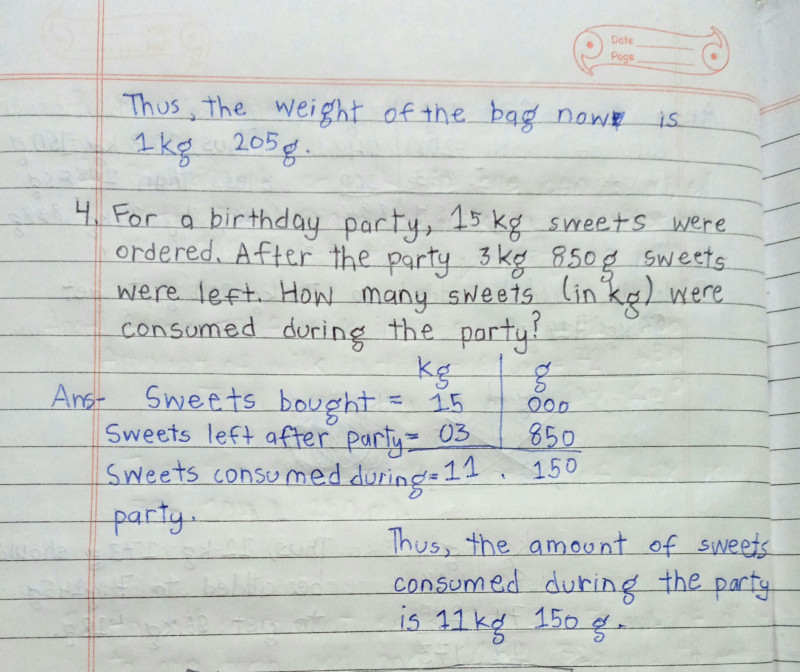 Date
Page
Thus, the weight of the bag now is
1 kg 205 g.
4. For a birthday party, 15 kg sweets were
ordered. After the party 3 kg 850 g sweets
were left. How many sweets (in kg) were
consumed during the party?
kg | g
Ans- Sweets bought = 15 | 000
Sweets left after party = 03 | 850
Sweets consumed during = 11 . 150
party.
Thus, the amount of sweets
consumed during the party
is 11 kg 150 g.